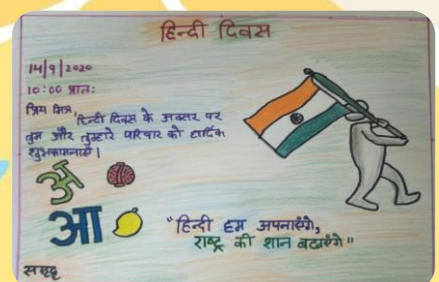 हिन्दी दिवस
14/9/2020
10:00 प्रात:
प्रिय मित्र,
हिन्दी दिवस के अवसर पर
तुम और तुम्हारे परिवार को हार्दिक
शुभकामनाएँ।
अ
आ
"हिन्दी हम अपनाएंगे,
राष्ट्र की शान बढाएंगे"